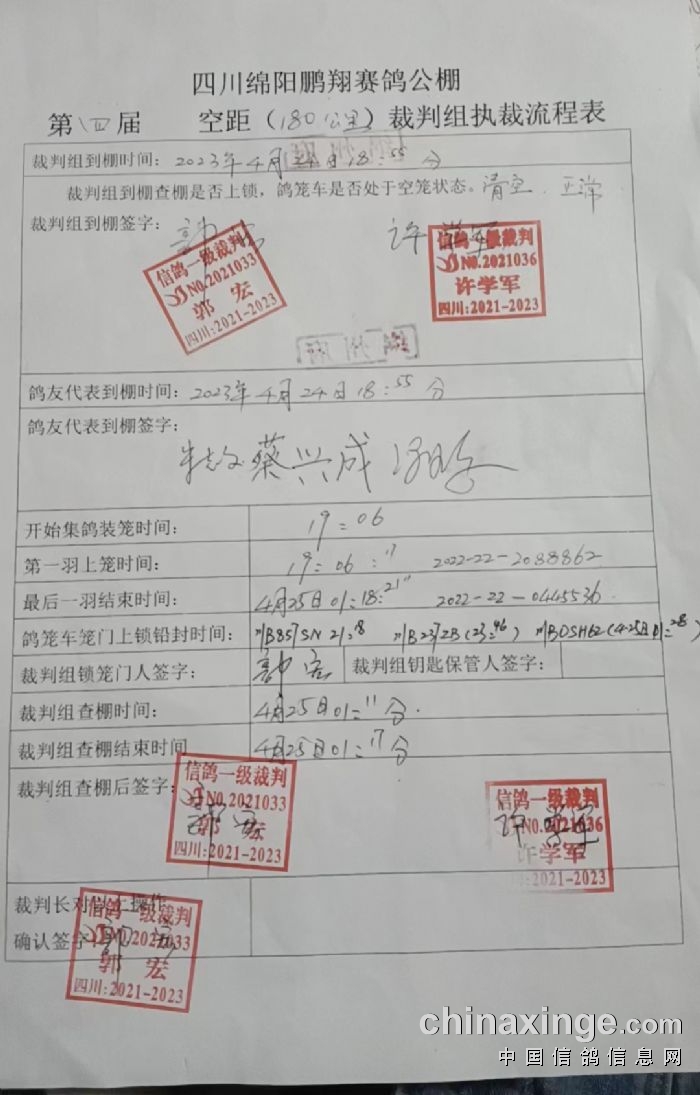 四川绵阳鹏翔赛鸽公棚
第四届 空距（180公里）裁判组执裁流程表
裁判组到棚时间：2023年4月24日18:55分
裁判组到棚查棚是否上锁，鸽笼车是否处于空笼状态。清空．正常
裁判组到棚签字：
许学军
信鸽一级裁判
NO.2021033
郭宏
四川:2021-2023
信鸽一级裁判
NO.2021036
许学军
四川:2021-2023
鸽友代表到棚时间：2023年4月24日18:55分
鸽友代表到棚签字：
蔡兴成
开始集鸽装笼时间： 19:06
第一羽上笼时间： 19:06:11 2022-22-2088862
最后一羽结束时间： 4月25日01:18:21" 2022-22-0445536
鸽笼车笼门上锁铅封时间： 川B857SN 21:18 川B237ZB(23:46) 川BDSH62(4.25日01:28)
裁判组锁笼门人签字： 郭宏 裁判组钥匙保管人签字：
裁判组查棚时间： 4月25日01:11分.
裁判组查棚结束时间 4月25日01:17分
裁判组查棚后签字：
郭宏
许学军
信鸽一级裁判
NO.2021033
郭宏
四川:2021-2023
信鸽一级裁判
NO.2021036
许学军
四川:2021-2023
裁判长对以上操作
确认签字
郭宏
信鸽一级裁判
NO.2021033
郭宏
四川:2021-2023
chinaxinge.com
中国信鸽信息网